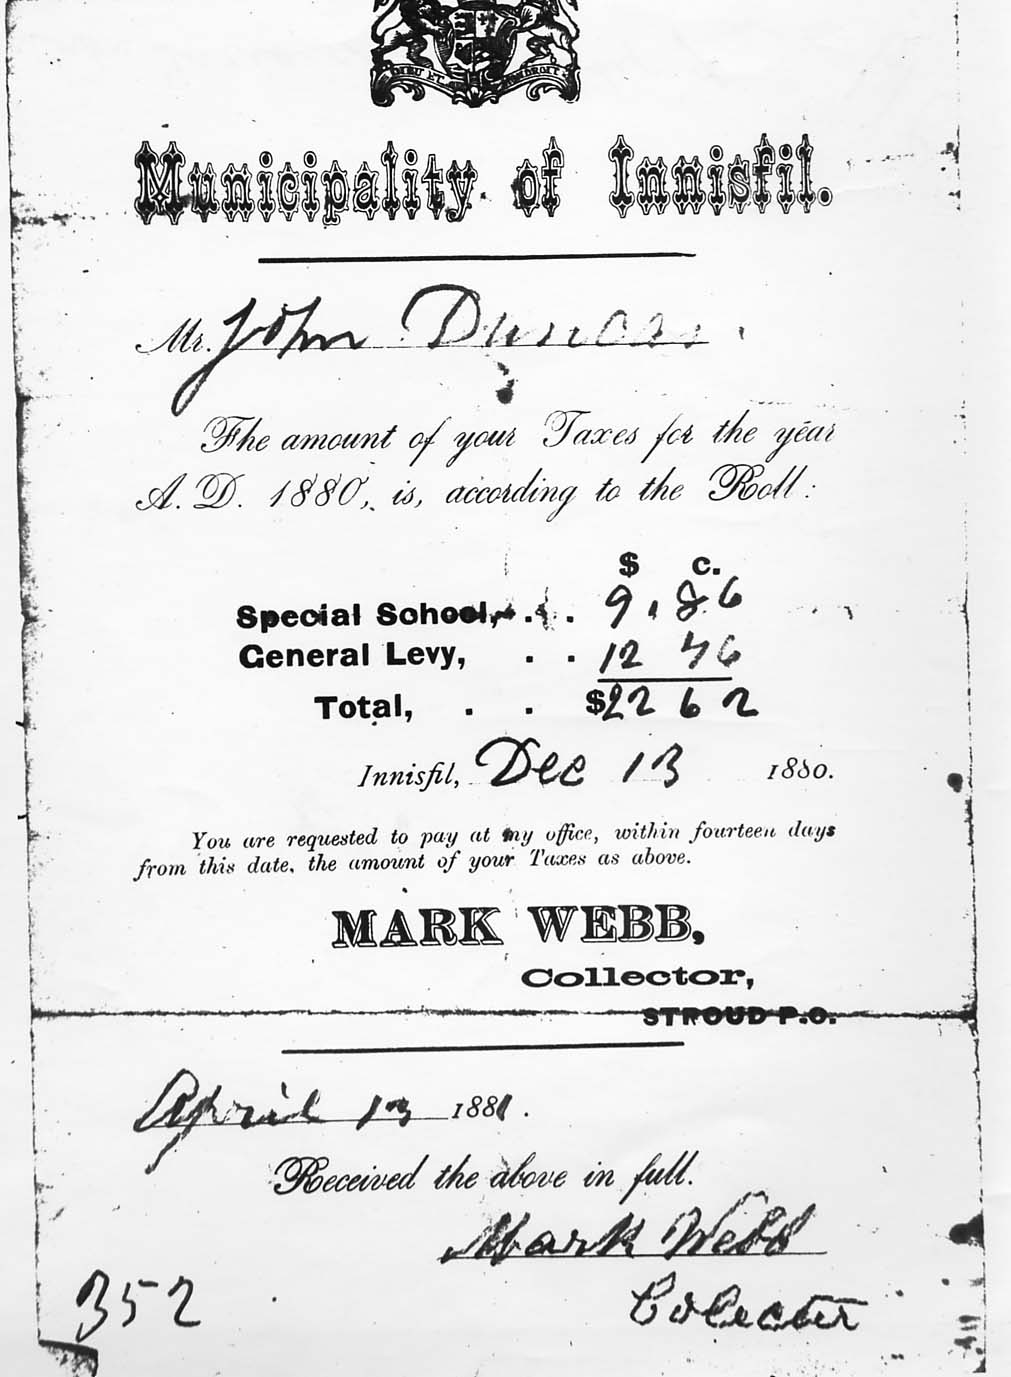 DIEU ET MON DROIT
Municipality of Innisfil.
Mr. John Duncan
The amount of your Taxes for the year
A. D. 1880, is, according to the Roll:
$ c.
Special School, . . 9.86
General Levy, . . 12 76
Total, . . $22 62
Innisfil, Dec 13 1880.
You are requested to pay at my office, within fourteen days
from this date, the amount of your Taxes as above.
MARK WEBB,
Collector,
STROUD P.O.
April 13 1881.
Received the above in full.
Mark Webb
Collector
352